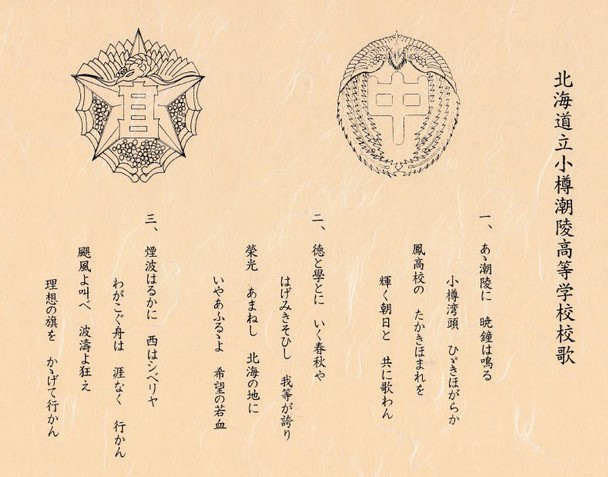 北海道立小樽潮陵高等学校校歌
一、あゝ潮陵に　暁鐘は鳴る
小樽湾頭　ひゞきほがらか
鳳高校の　たかきほまれを
輝く朝日と　共に歌わん
二、徳と學とに　いく春秋や
はげみきそひし　我等が誇り
榮光　あまねし　北海の地に
いやあふるゝよ　希望の若血
三、煙波はるかに　西はシベリヤ
わがこぐ舟は　涯なく　行かん
颶風よ叫べ　波濤よ狂え
理想の旗を　かゝげて行かん
中
高